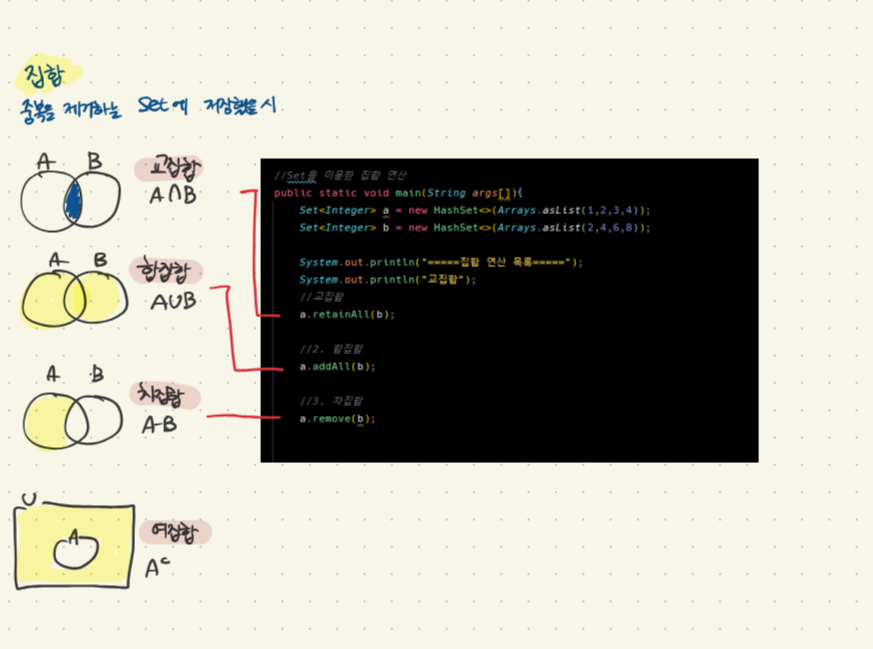 집합
중복을 제거하는 Set에 저장했을 시
A B
교집합
A∩B
A B
합집합
A∪B
A B
차집합
A-B
U
A
여집합
Aᶜ
//Set를 이용한 집합 연산
public static void main(String args[]){
Set<Integer> a = new HashSet<>(Arrays.asList(1,2,3,4));
Set<Integer> b = new HashSet<>(Arrays.asList(2,4,6,8));
System.out.println("=====집합 연산 목록=====");
System.out.println("교집합");
//교집합
a.retainAll(b);
//2. 합집합
a.addAll(b);
//3. 차집합
a.remove(b);